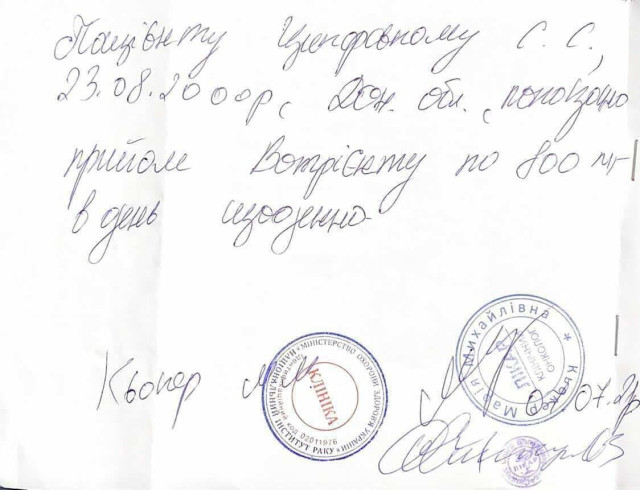 Пацієнту Циндровному С. С.,
23.08.2000р, Дон. обл., показано
прийом Вотрієнту по 800 мг
в день щоденно
Кьокер М М
МІНІСТЕРСТВО ОХОРОНИ ЗДОРОВ'Я УКРАЇНИ
НАЦІОНАЛЬНИЙ ІНСТИТУТ РАКУ
Ідентифікаційний код 02011976
КЛІНІКА
Кьокер Марія Михайлівна
ЛІКАР
ОНКОЛОГ
07.